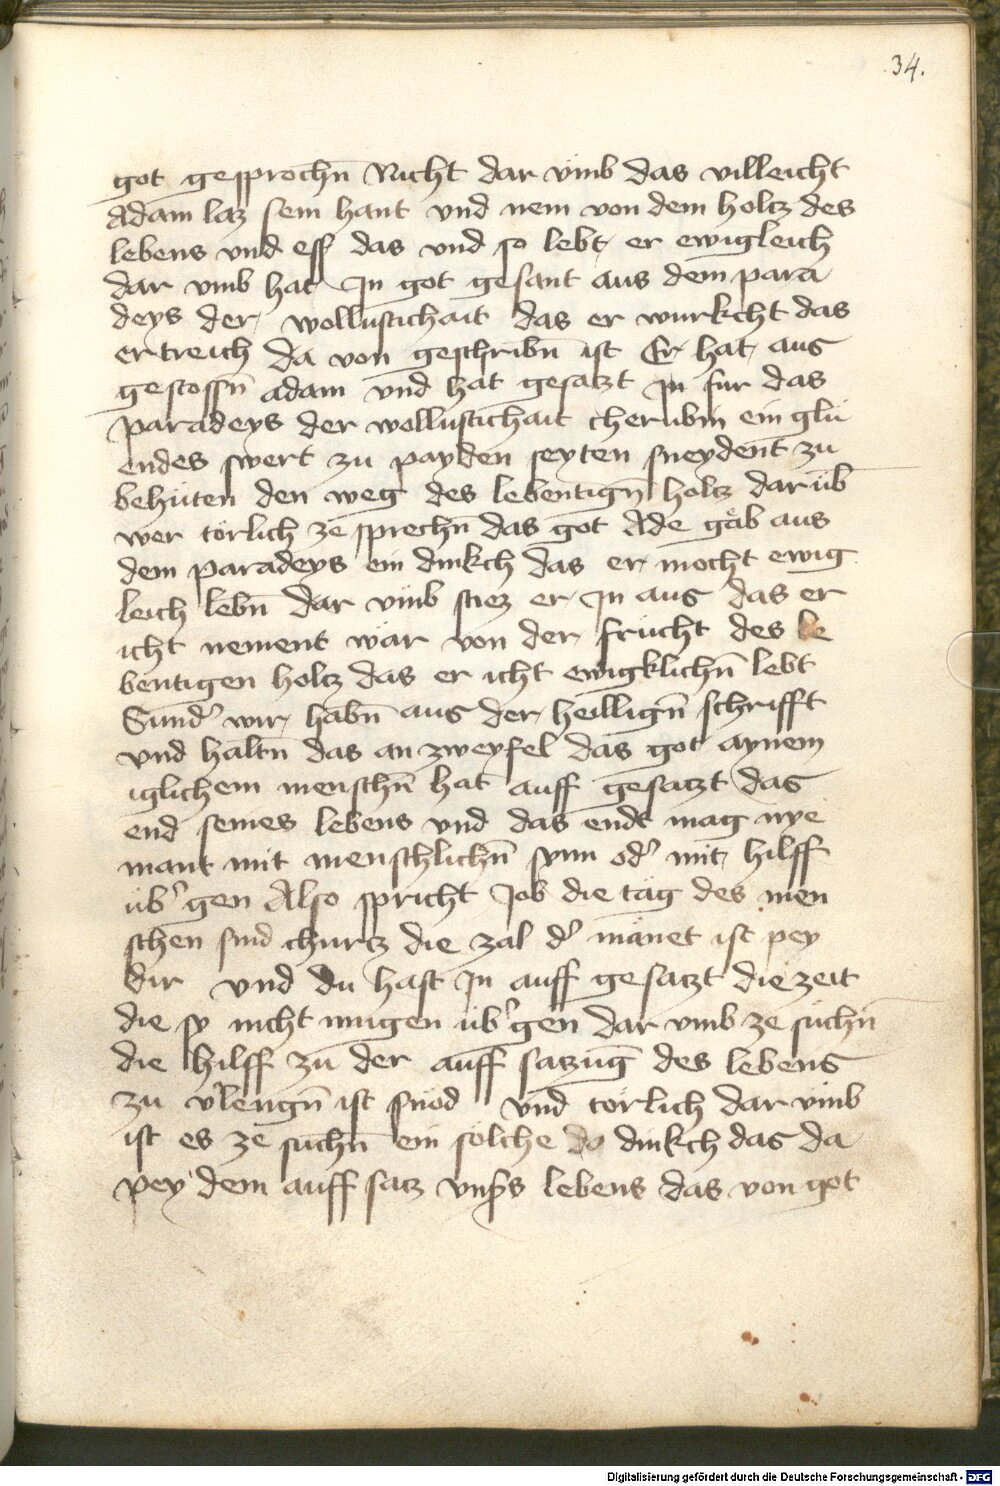 34.
got gesprochn̄ Nicht dar vmb das villeicht
Adam laz sein hant vnd nem von dem holcz des
lebens vnd eſſ das vnd so lebt er ewigleich
dar vmb hat In got gesant aus dem para
deys der wollustichait das er wurkcht das
ertreich da von geschribn̄ ist Er hat aus
gestossn̄ adam vnd hat gesaczt in fur das
paradeys der wollustichait cherubin ein glü
endes swert zu payden seyten sneydent zu
behüten den weg des lebentign̄ holcz darüb̄
wer törlich ze sprechn̄ das got Ade gäb aus
dem paradeys ein dinkch das er mocht ewig
leich lebn̄ dar vmb stiez er In aus das er
icht nement wär von der frücht des le
bentigen holcz das er icht ewigklichn̄ lebt
Sund' wir habn̄ aus der heillign̄ schrifft
vnd haltn̄ das an zweyfel das got aynem
iglichem menschn̄ hat auff gesaczt das
end seines lebens vnd das endt mag nye
mant mit menschlichn̄ synn od' mit hilff
üb'gen Also spricht Job die täg des men
schen sind churcz die zal d' mänet ist pey
dir vnd du hast In auff gesaczt die zeit
die sy nicht mugen üb'gen dar vmb ze süchn̄
die hilff zu der auff saczūg des lebens
zu v'lengn̄ ist snöd vnd törlich dar vmb
ist es ze süchn̄ ein sölche do dinkch das da
pey dem auff sacz vns's lebens das von got
Digitalisierung gefördert durch die Deutsche Forschungsgemeinschaft - DFG